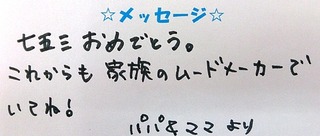 ☆メッセージ☆
七五三 おめでとう。
これからも 家族のムードメーカーで
いてね!
パパ&ママ より